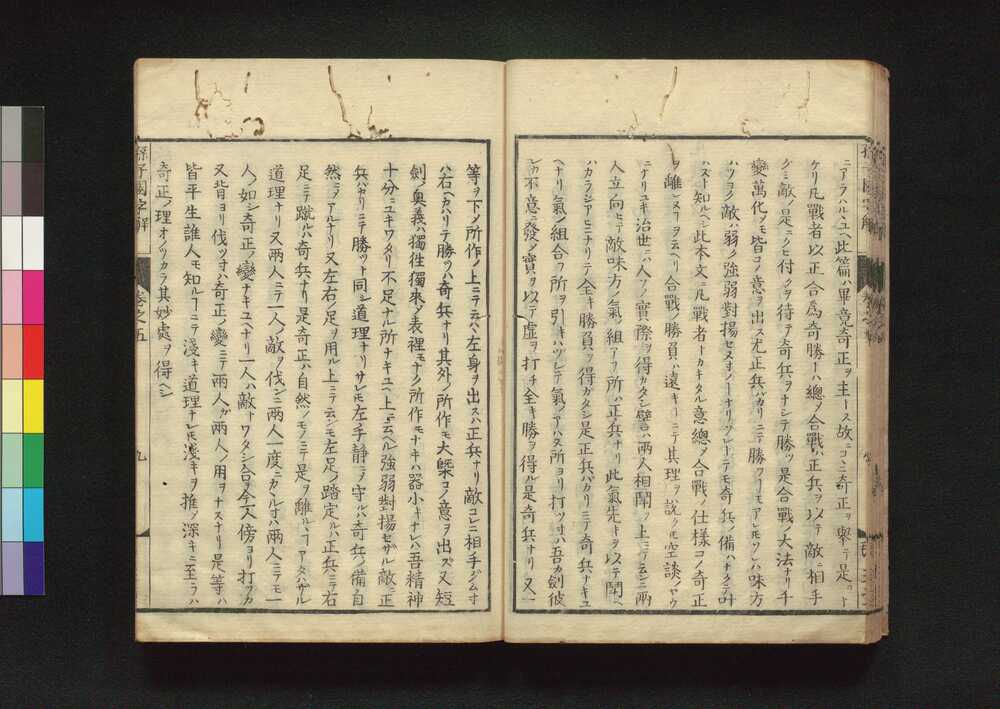 ニアラハルユヘ此篇ハ畢竟奇正ヲ主トス故ニココニ奇正ヲ擧テ是ヨト
ケリ凡戰者以正合爲奇勝トハ總シテ合戰ハ正兵ヲ以テ敵ニ相手
グミ敵ノ是ニクヒ付クヲ待テ奇兵ヲナシテ勝ツ是合戰ノ大法ナリ千
變萬化ノモ皆コノ意ヲ出ス尤正兵バカリニテ勝ヿモアレモソレハ味方
ハツヨク敵ハ弱ク強弱對揚セヌヿノヿナリソレトテモ奇兵ノ備ハナクテ叶
ハスト知ルヘシ此本文ニ凡戰者トカキタル意總シテ合戰ノ仕樣コノ奇正
ヲ離レヌヿヲ云ヘリ合戰ノ勝負ハ遠キヿニテ其理ヲ說クモ空談ノヤウ
ニナリユキ治世ニハ人ノ實際ヲ得カタシ譬ハ兩人相鬪フ上ニテ云ンニ兩
人立向ヒテ敵味方ノ氣ノ組アフ所ハ正兵ナリ此氣先ヲ以テ鬪ヘ
ハカラシアヒニナリテ全キ勝負ヲ得ガタシ是正兵バカリニテ奇兵ナキユ
ヘナリ氣ノ組合フ所ヲ引キハツシテ氣ノアハヌ所ヨリ打ツ寸ハ吾カ劍彼
レカ不意ニ發ノ實ヲ以テ虛ヲ打チ全キ勝ヲ得ル是奇兵ナリ又一
等ヲ下ノ所作ノ上ニテ云ハヽ左身ヲ出スハ正兵ナリ敵コレニ相手グム寸
ハ右ヘカハリテ勝ツハ奇兵ナリ其外ノ所作モ大槩コノ意ヲ出ズ又短
劍ノ奧義ハ獨徃獨來ノ表裡モナク所作モナキハ器小キナレハ吾精神
十分ニユキワタリ不足ナル所ナキユヘ上ニ云ヘル強弱對揚セザル敵ニ正
兵バカリニテ勝ツト同シ道理ナリサレモ左手靜ニテ守ルハ奇兵ノ備自
然ニアルナリ又左右ノ足ヲ用ル上ニテ云ンモ左足ノ踏定ルハ正兵ニテ右
足ニテ蹴ルハ奇兵ナリ是奇正ハ自然ノモノニテ是ヲ離ルヽヿアタハザル
道理ナリ又兩人ニテ一人ノ敵ヲ伐ンニ兩人一度ニカヽル寸ハ兩人ニテモ一
人ノ如シ奇正ノ變ナキユヘナリ一人ハ敵トワタシ合ヲ今一人傍ヨリ打ツカ
又背ヨリ伐ツ寸ハ奇正ノ變ニテ兩人ガ兩人ノ用ヲナスナリ是等ハ
皆平生誰人モ知ルヿニテ淺キ道理ナレモ淺キヲ推ノ深キニ至ラハ
奇正ノ理オノヅカラ其妙處ヲ得ヘシ
孫子國字解
卷之五
九